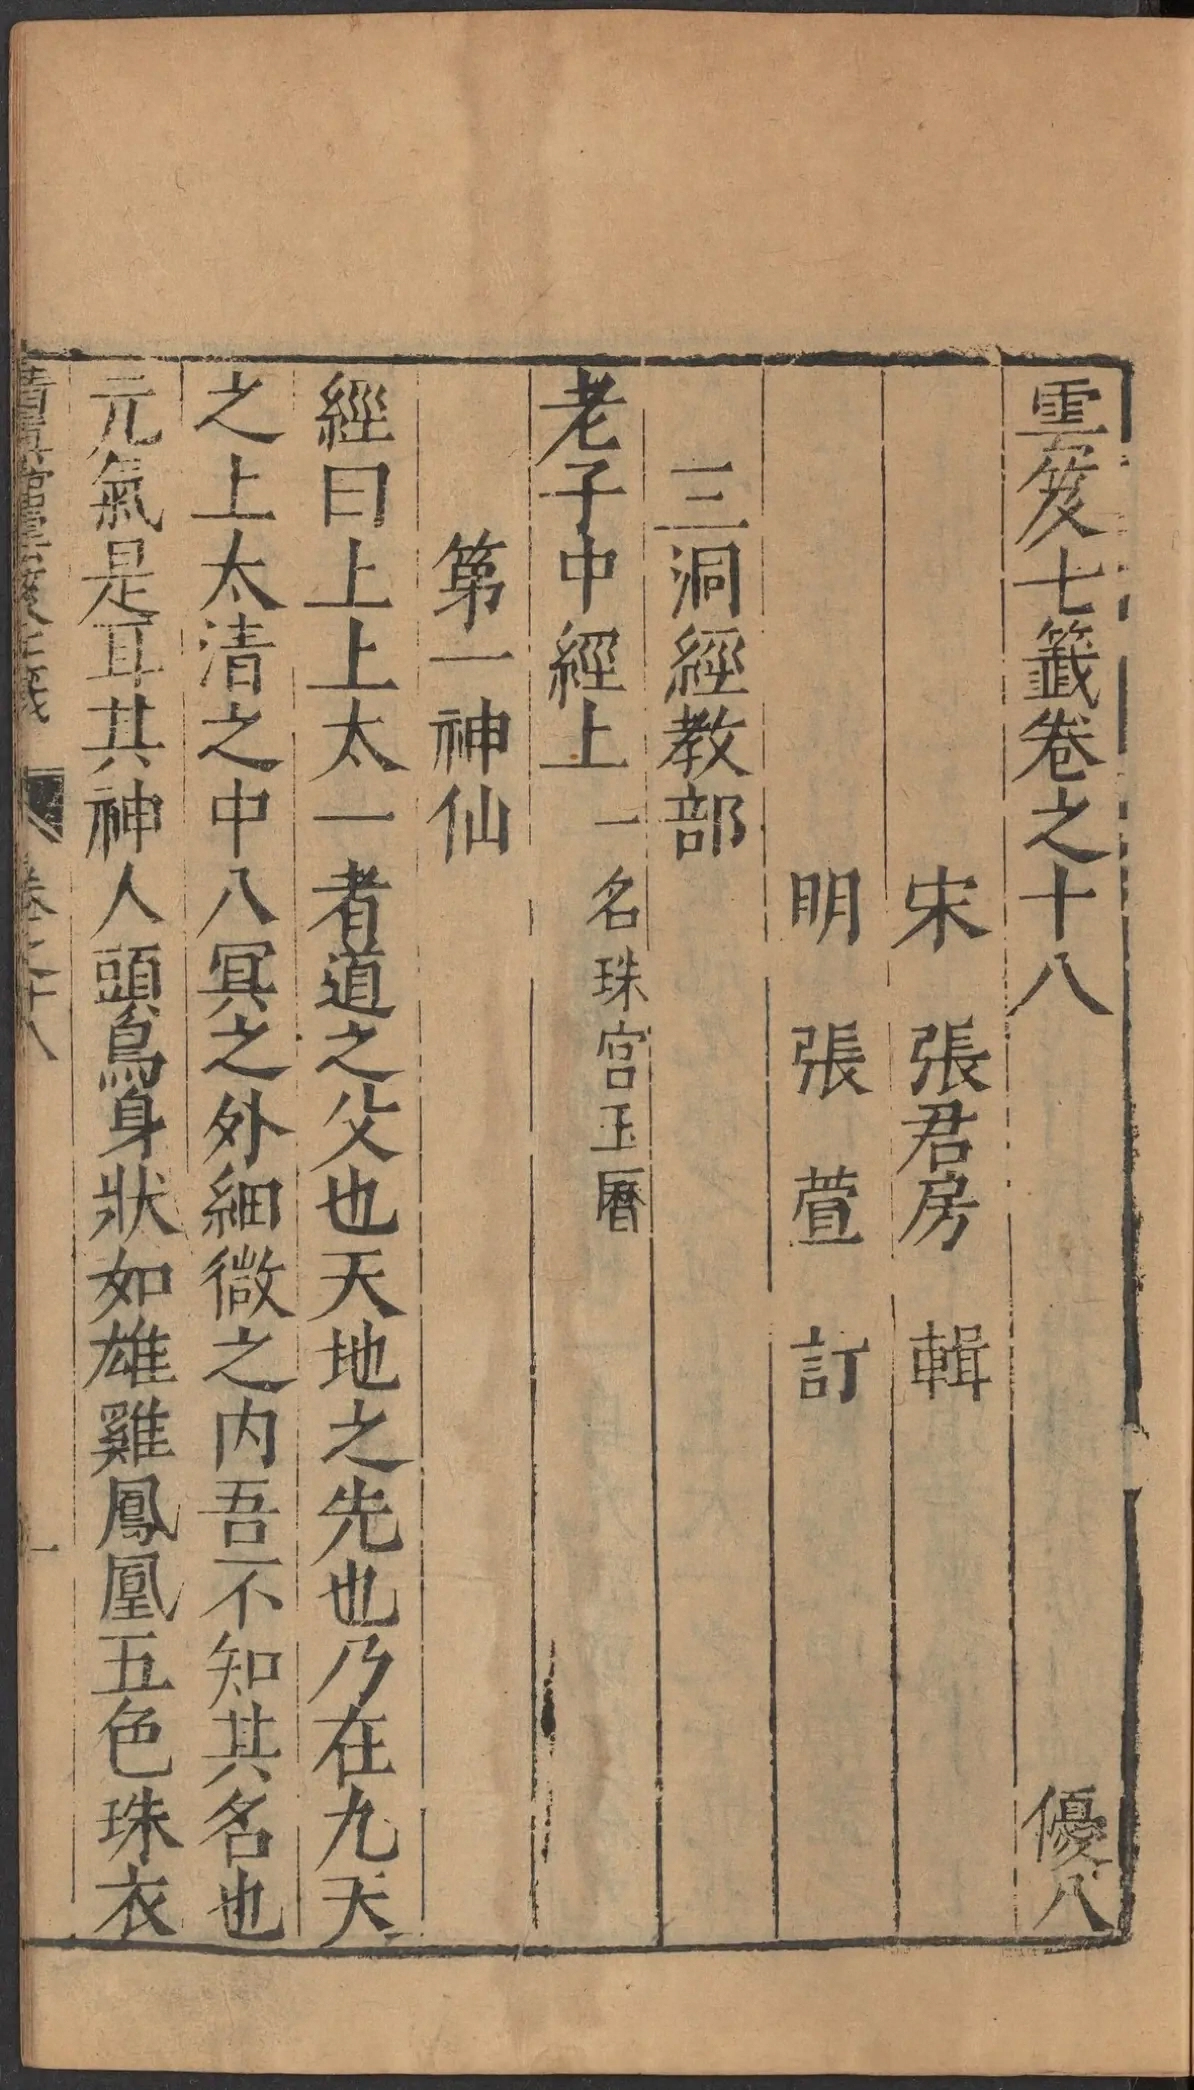 雲笈七籤卷之十八 優八
宋 張君房 輯
明 張 萱 訂
三洞經教部
老子中經上 一名珠宮玉曆
第一神仙
經曰上上太一者道之父也天地之先也乃在九天
之上太清之中八冥之外細微之內吾不知其名也
元氣是耳其神人頭鳥身狀如雄雞鳳凰五色珠衣
清真館雲笈七籤 卷之十八 一